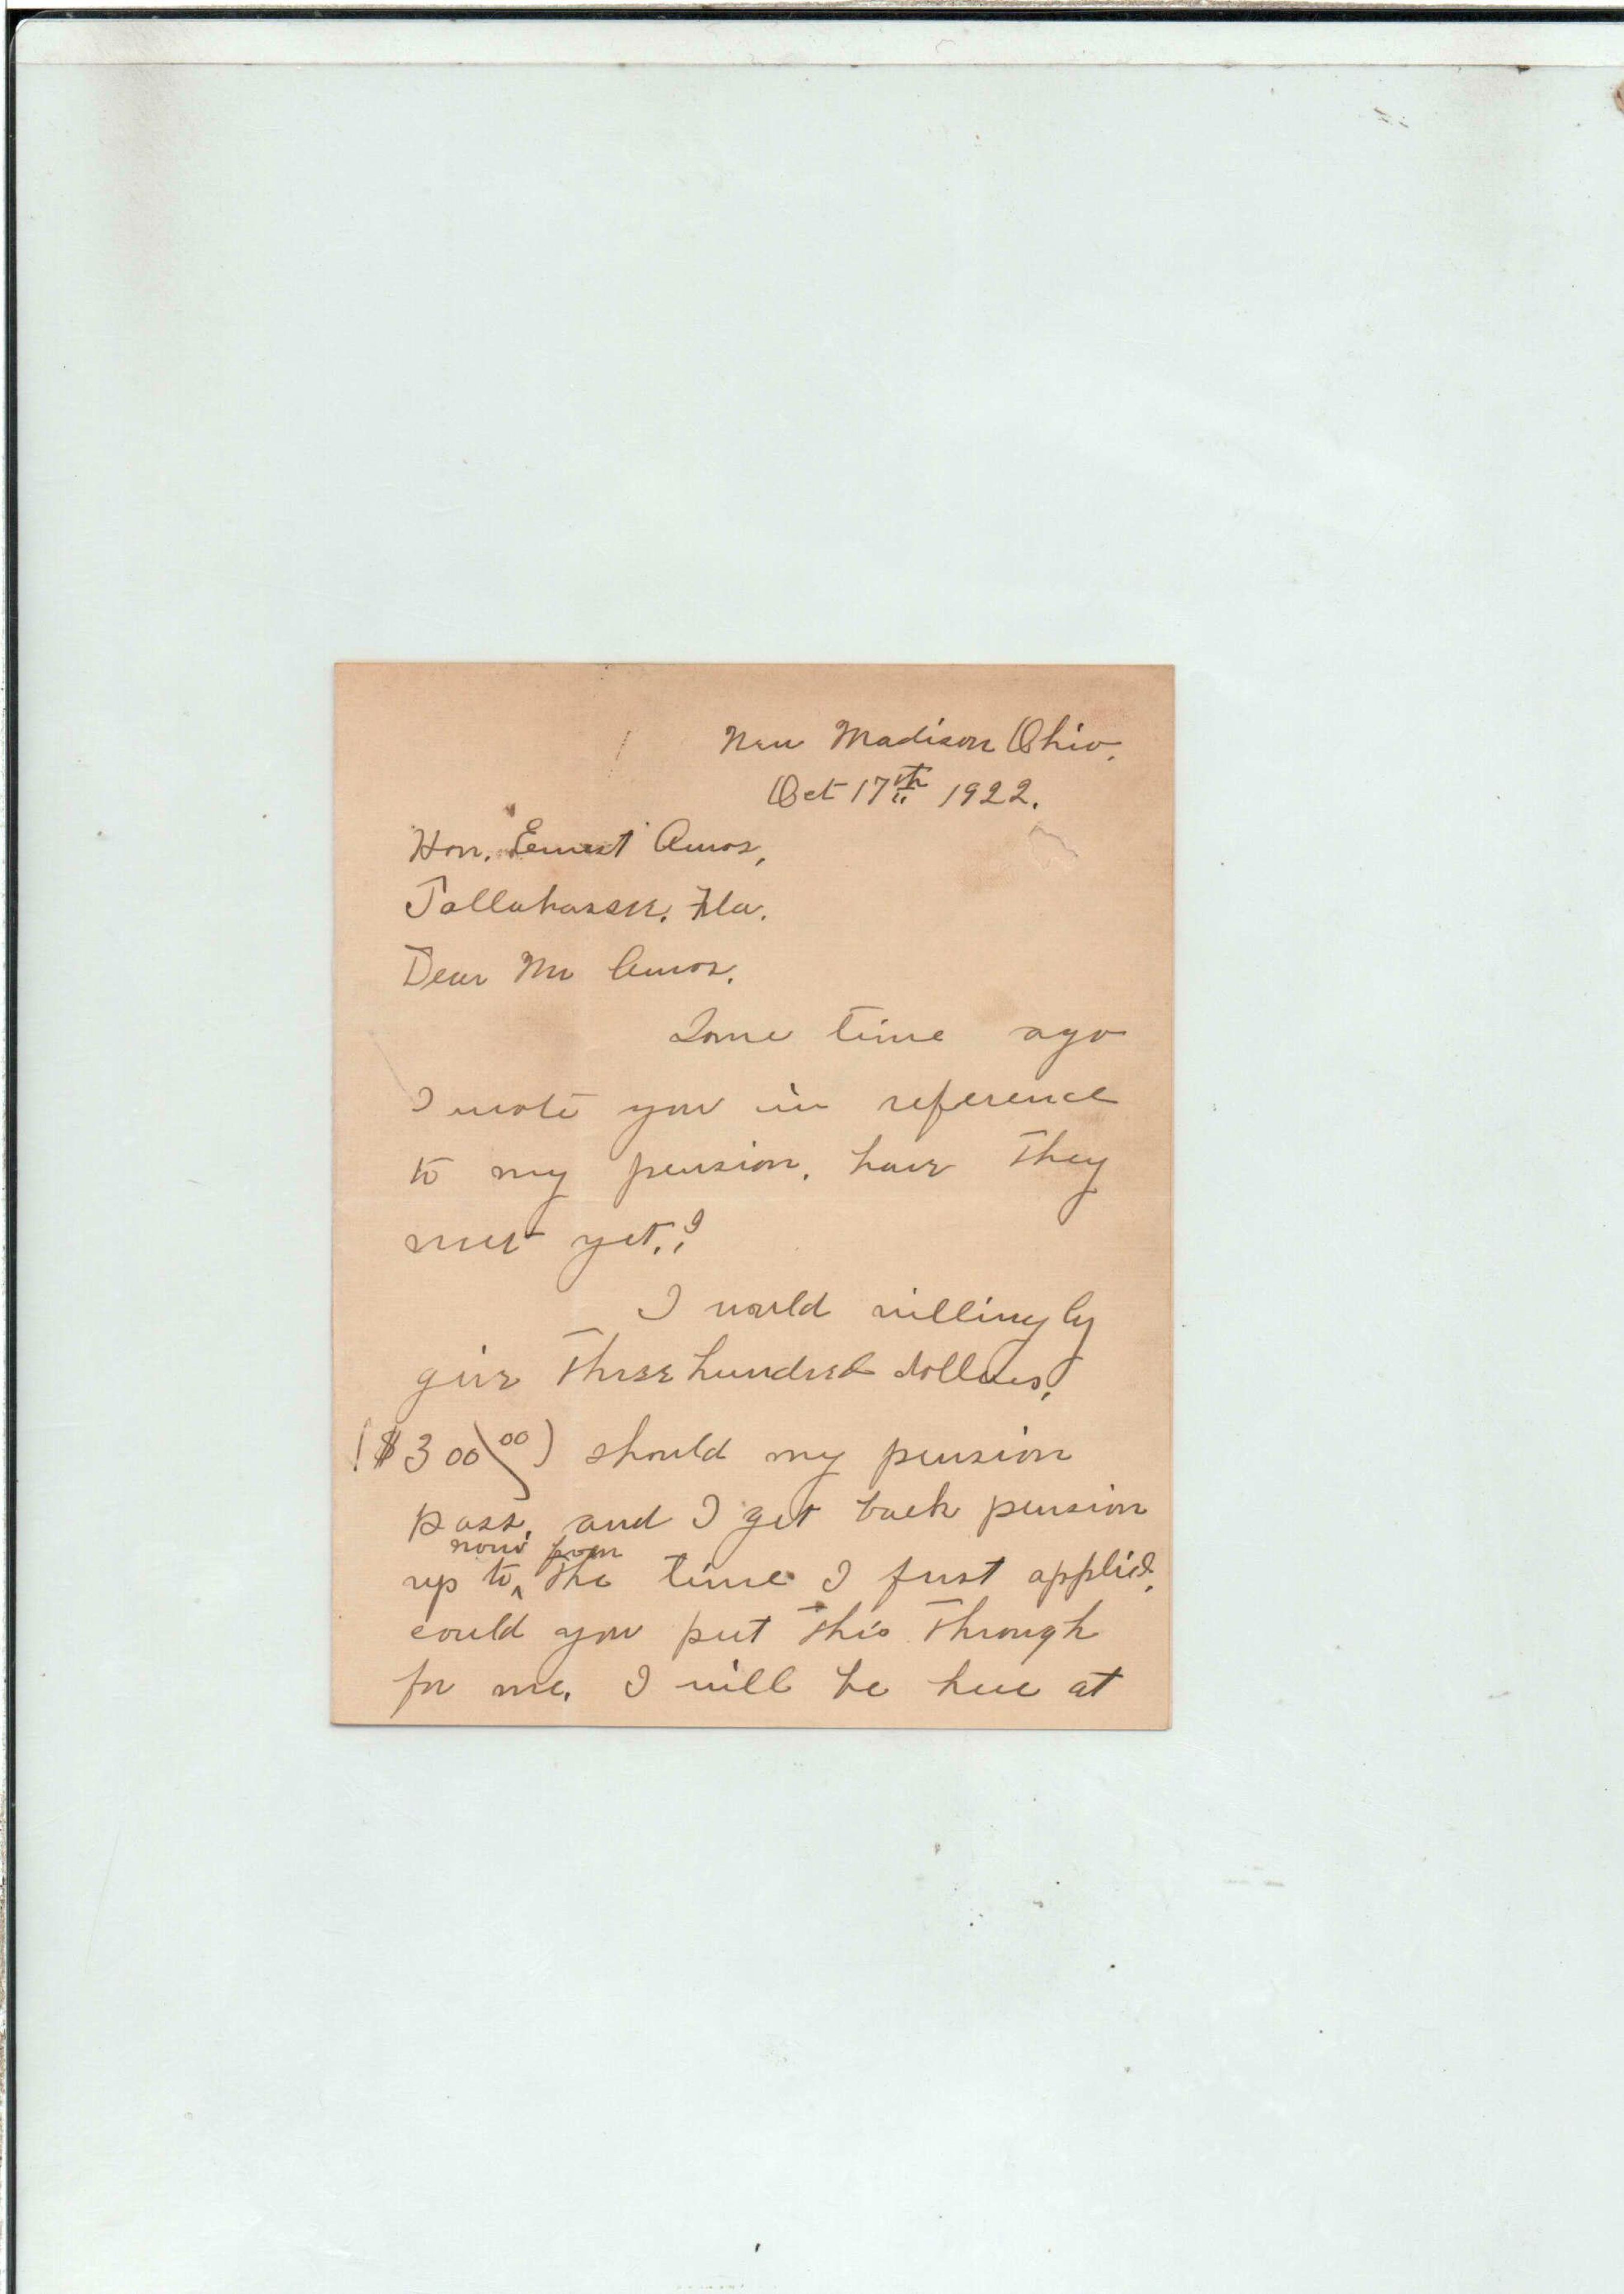 New Madison Ohio,
Oct 17th 1922.
Hon. Ernest Amos,
Tallahassee. Fla.
Dear Mr Amos.
Some time ago
I wrote you in reference
to my pension. have they
met yet.?
I would willingly
give three hundred dollars,
($300 00) should my pension
pass. and I get back pension
now from
up to ^ the time I first applied.
could you put this through
for me. I will be here at